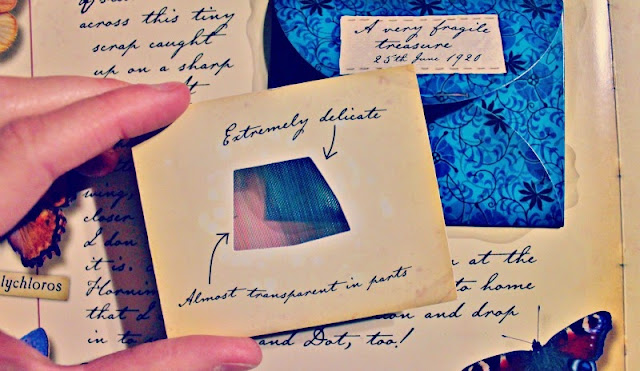 across this tiny
scrap caught
up on a sharp
A very fragile
treasure
25th June 1920
Extremely delicate
Almost transparent in parts
wing,
closer
I don
it is.
that I
in to
lychloros
at the
to home
and drop
and Dot, too!